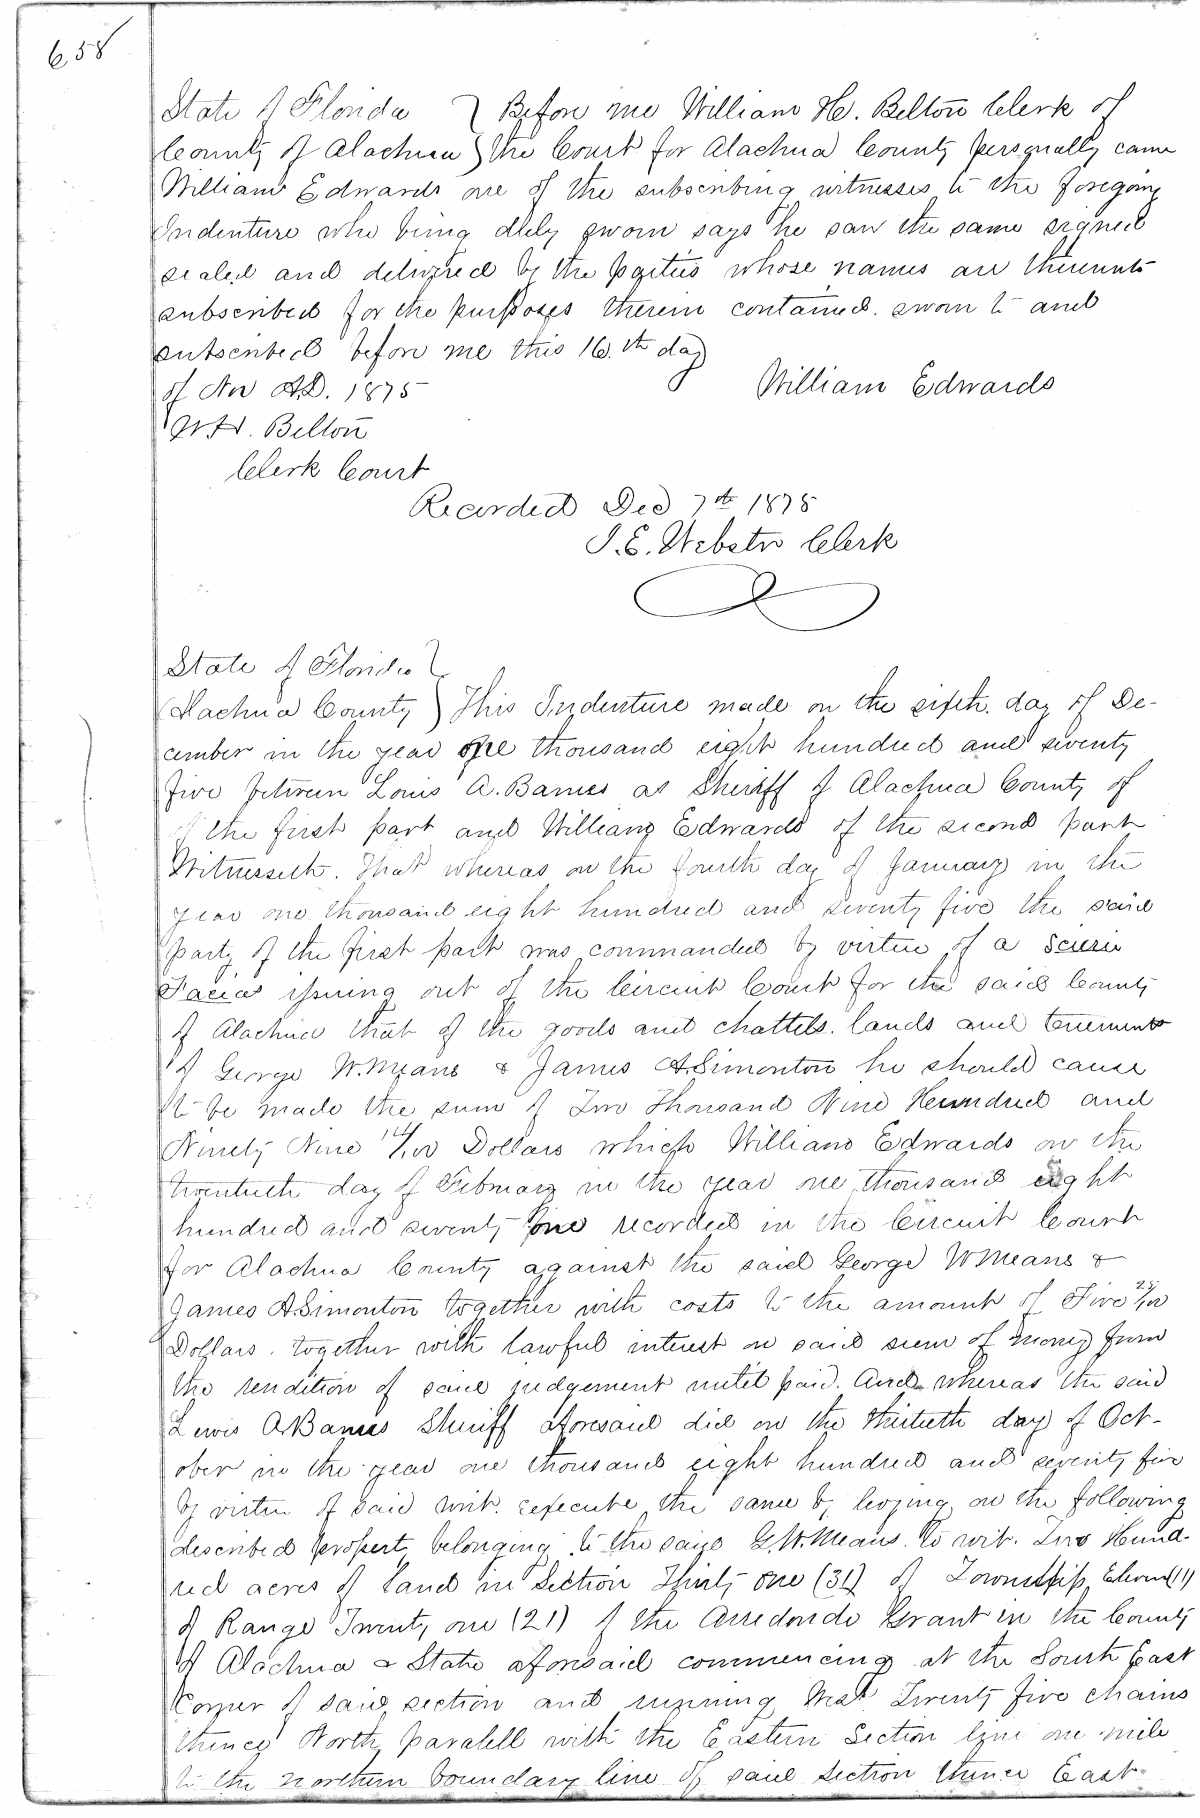 658
State of Florida } Before me William H. Belton Clerk of
County of Alachua } the Court for Alachua County personally came
William Edwards one of the subscribing witnesses to the foregoing
Indenture who being duly sworn says he saw the same signed
sealed and delivered by the parties whose names are thereunto
subscribed for the purposes therein contained. sworn to and
subscribed before me this 16th day
of Nov A.D. 1875
William Edwards
W.H. Belton
Clerk Court
Recorded Dec 7th 1875
J. E. Webster Clerk
State of Florida }
Alachua County } This Indenture made on the sixth. day of De-
cember in the year one thousand eight hundred and seventy
five between Louis A. Barnes as Sheriff of Alachua County of
of the first part and William Edwards of the second part
Witnesseth. That whereas on the fourth day of January in the
year one thousand eight hundred and seventy five the said
party of the first part was commanded by virtue of a Scieri
Facias issuing out of the Circuit Court for the said County
of Alachua that of the goods and chattels. lands and tenements
of George W. Means & James A. Simonton he should cause
to be made the sum of Two Thousand Nine Hundred and
Ninety Nine 14/100 Dollars which William Edwards on the
twentieth day of February in the year one thousand eight
hundred and seventy one recorded in the Circuit Court
for Alachua County against the said George W Means &
James A Simonton together with costs to the amount of Five 28/100
Dollars. together with lawful interest on said sum of money from
the rendition of said judgement until paid. And whereas the said
Lewis A Barnes Sheriff aforesaid did on the thirtieth day of Oct-
ober in the year one thousand eight hundred and seventy five
by virtue of said writ. execute the same by levying on the following
described property belonging to the said G. W. Means. to wit. Two Hund-
red acres of land in Section Thirty one (31) of Township Eleven (11)
of Range Twenty one (21) of the Arredondo Grant in the County
of Alachua & State aforesaid commencing at the South East
Corner of said section and running West Twenty five chains
thence North paralell with the Eastern Section line one mile
to the northern boundary line of said section thence East